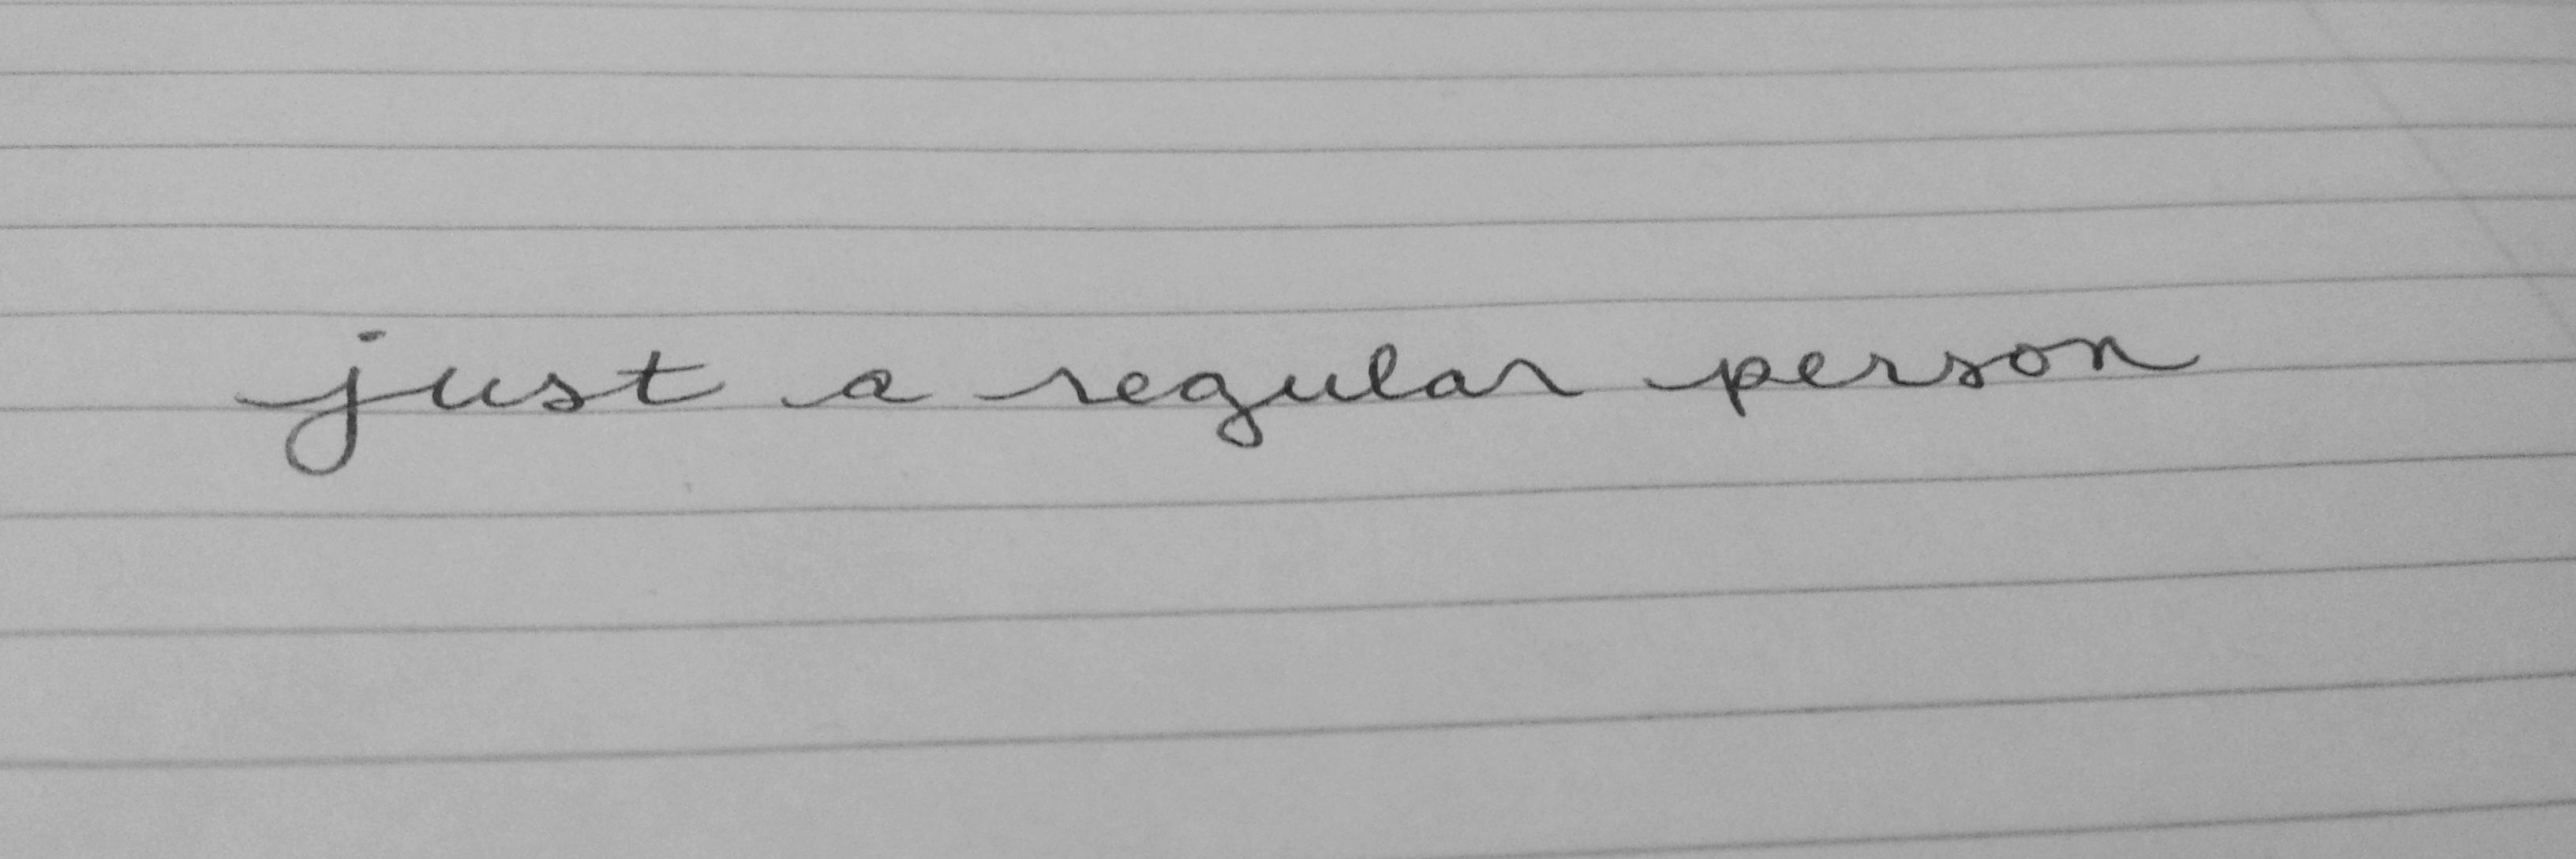 just a regular person